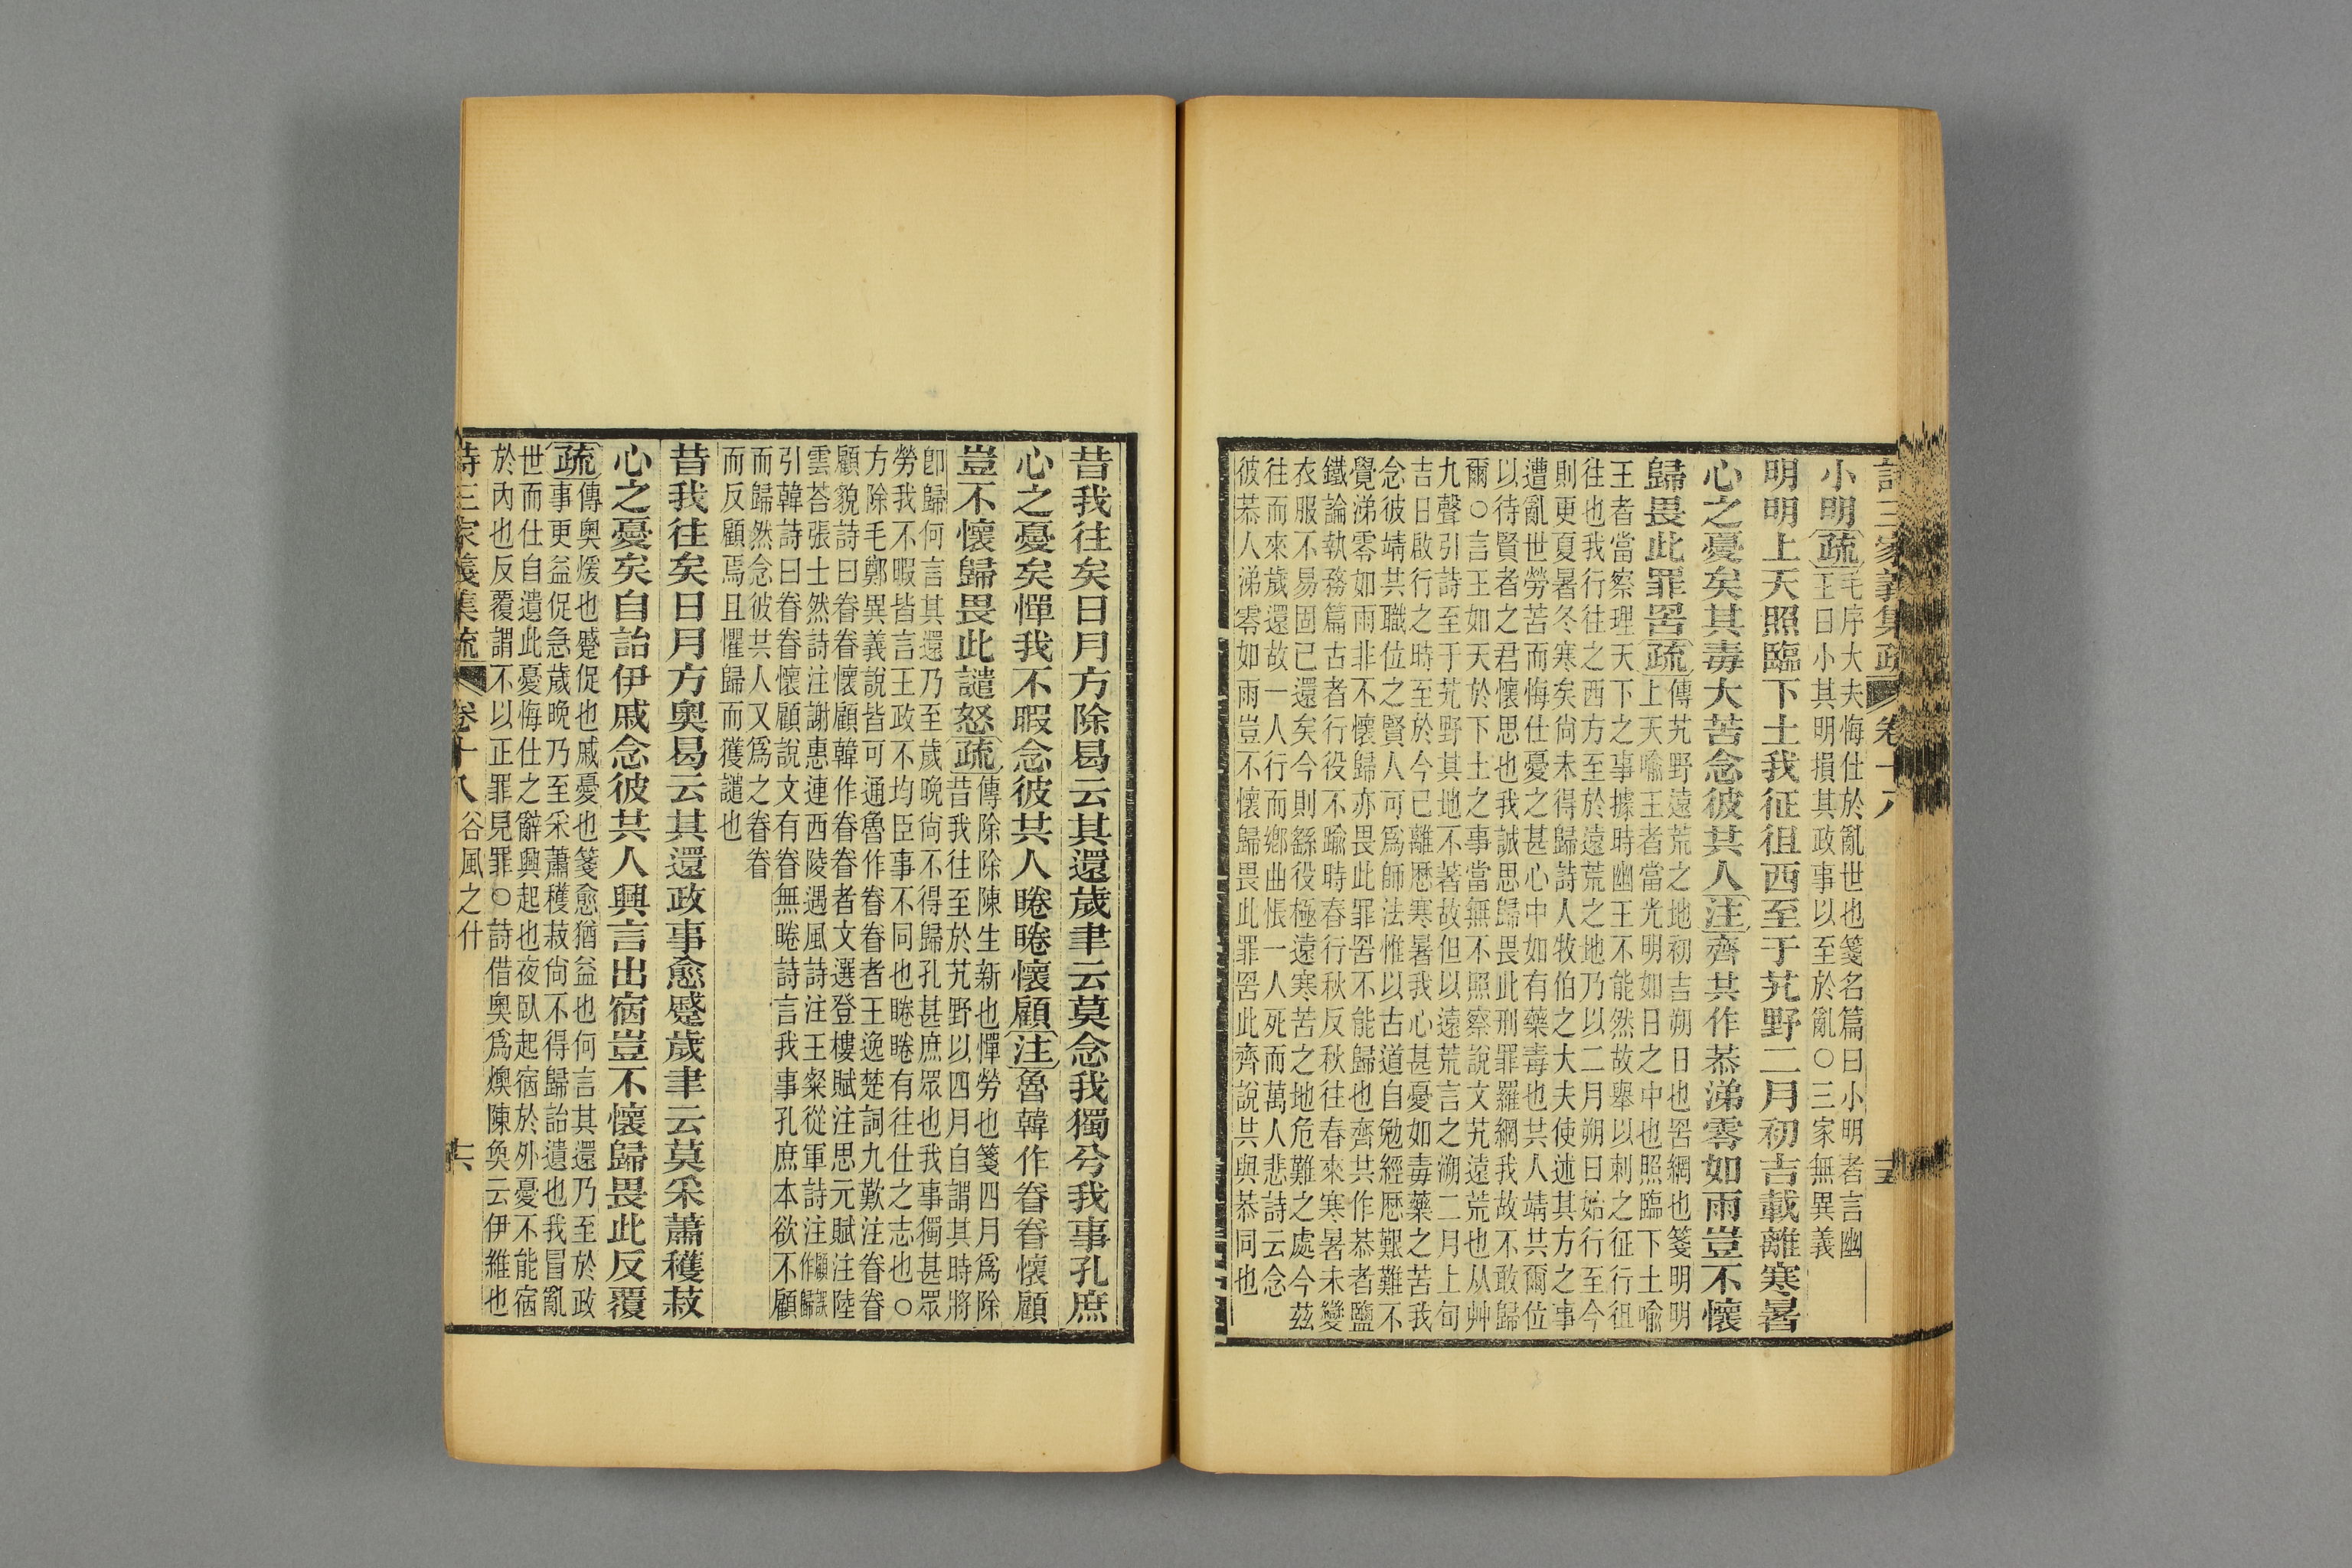 詩三家義集疏 卷十八 十五
小明疏毛序大夫悔仕於亂世也箋名篇曰小明者言幽
王日小其明損其政事以至於亂○三家無異義
明明上天照臨下土我征徂西至于艽野二月初吉載離寒暑
心之憂矣其毒大苦念彼共人注齊共作恭涕零如雨豈不懷
歸畏此罪罟疏傳艽野遠荒之地初吉朔日也罟網也箋明明
上天喻王者當光明如日之中也照臨下土喻
王者當察理天下之事據時幽王不能然故舉以刺之征行徂
往也我行往之西方至於遠荒之地乃以二月朔日始行至今
則更夏暑冬寒矣尚未得歸詩人牧伯之大夫使述其方之事
遭亂世勞苦而悔仕憂之甚心中如有藥毒也共人靖共爾位
以待賢者之君懷思也我誠思歸畏此刑罪羅網我故不敢歸
爾○言王如天於下土之事當無不照察說文艽遠荒也从艸
九聲引詩至于艽野其地不著故但以遠荒言之溯二月上旬
吉日啟行之時至於今已離歷寒暑我心甚憂如毒藥之苦我
念彼靖共職位之賢人可為師法惟以古道自勉經歷艱難不
覺涕零如雨非不懷歸亦畏此罪罟不能歸也齊共作恭者鹽
鐵論執務篇古者行役不踰時春行秋反秋往春來寒暑未變
衣服不易固已還矣今則繇役極遠寒苦之地危難之處今茲
往而來歲還故一人行而鄉曲悵一人死而萬人悲詩云念
彼恭人涕零如雨豈不懷歸畏此罪罟此齊說共與恭同也
昔我往矣日月方除曷云其還歲聿云莫念我獨兮我事孔庶
心之憂矣憚我不暇念彼共人睠睠懷顧注魯韓作眷眷懷顧
豈不懷歸畏此譴怒疏傳除除陳生新也憚勞也箋四月為除
昔我往至於艽野以四月自謂其時將
卽歸何言其還乃至歲晚尚不得歸孔甚庶眾也我事獨甚眾
勞我不暇皆言王政不均臣事不同也睠睠有往仕之志也○
方除毛鄭異義說皆可通魯作眷眷者王逸楚詞九歎注眷眷
顧貌詩曰眷眷懷顧韓作眷眷者文選登樓賦注思元賦注陸
雲荅張士然詩注謝惠連西陵遇風詩注王粲從軍詩注顧誤作歸
引韓詩曰眷眷懷顧說文有眷無睠詩言我事孔庶本欲不顧
而歸然念彼共人又為之眷眷
而反顧焉且懼歸而獲譴也
昔我往矣日月方奧曷云其還政事愈蹙歲聿云莫采蕭穫菽
心之憂矣自詒伊戚念彼共人興言出宿豈不懷歸畏此反覆
疏傳奧煖也蹙促也戚憂也箋愈猶益也何言其還乃至於政
事更益促急歲晚乃至采蕭穫菽尚不得歸詒遺也我冒亂
世而仕自遺此憂悔仕之辭興起也夜臥起宿於外憂不能宿
於內也反覆謂不以正罪見罪○詩借奧為燠陳奐云伊維也
詩三家義集疏 卷十八 谷風之什 十六